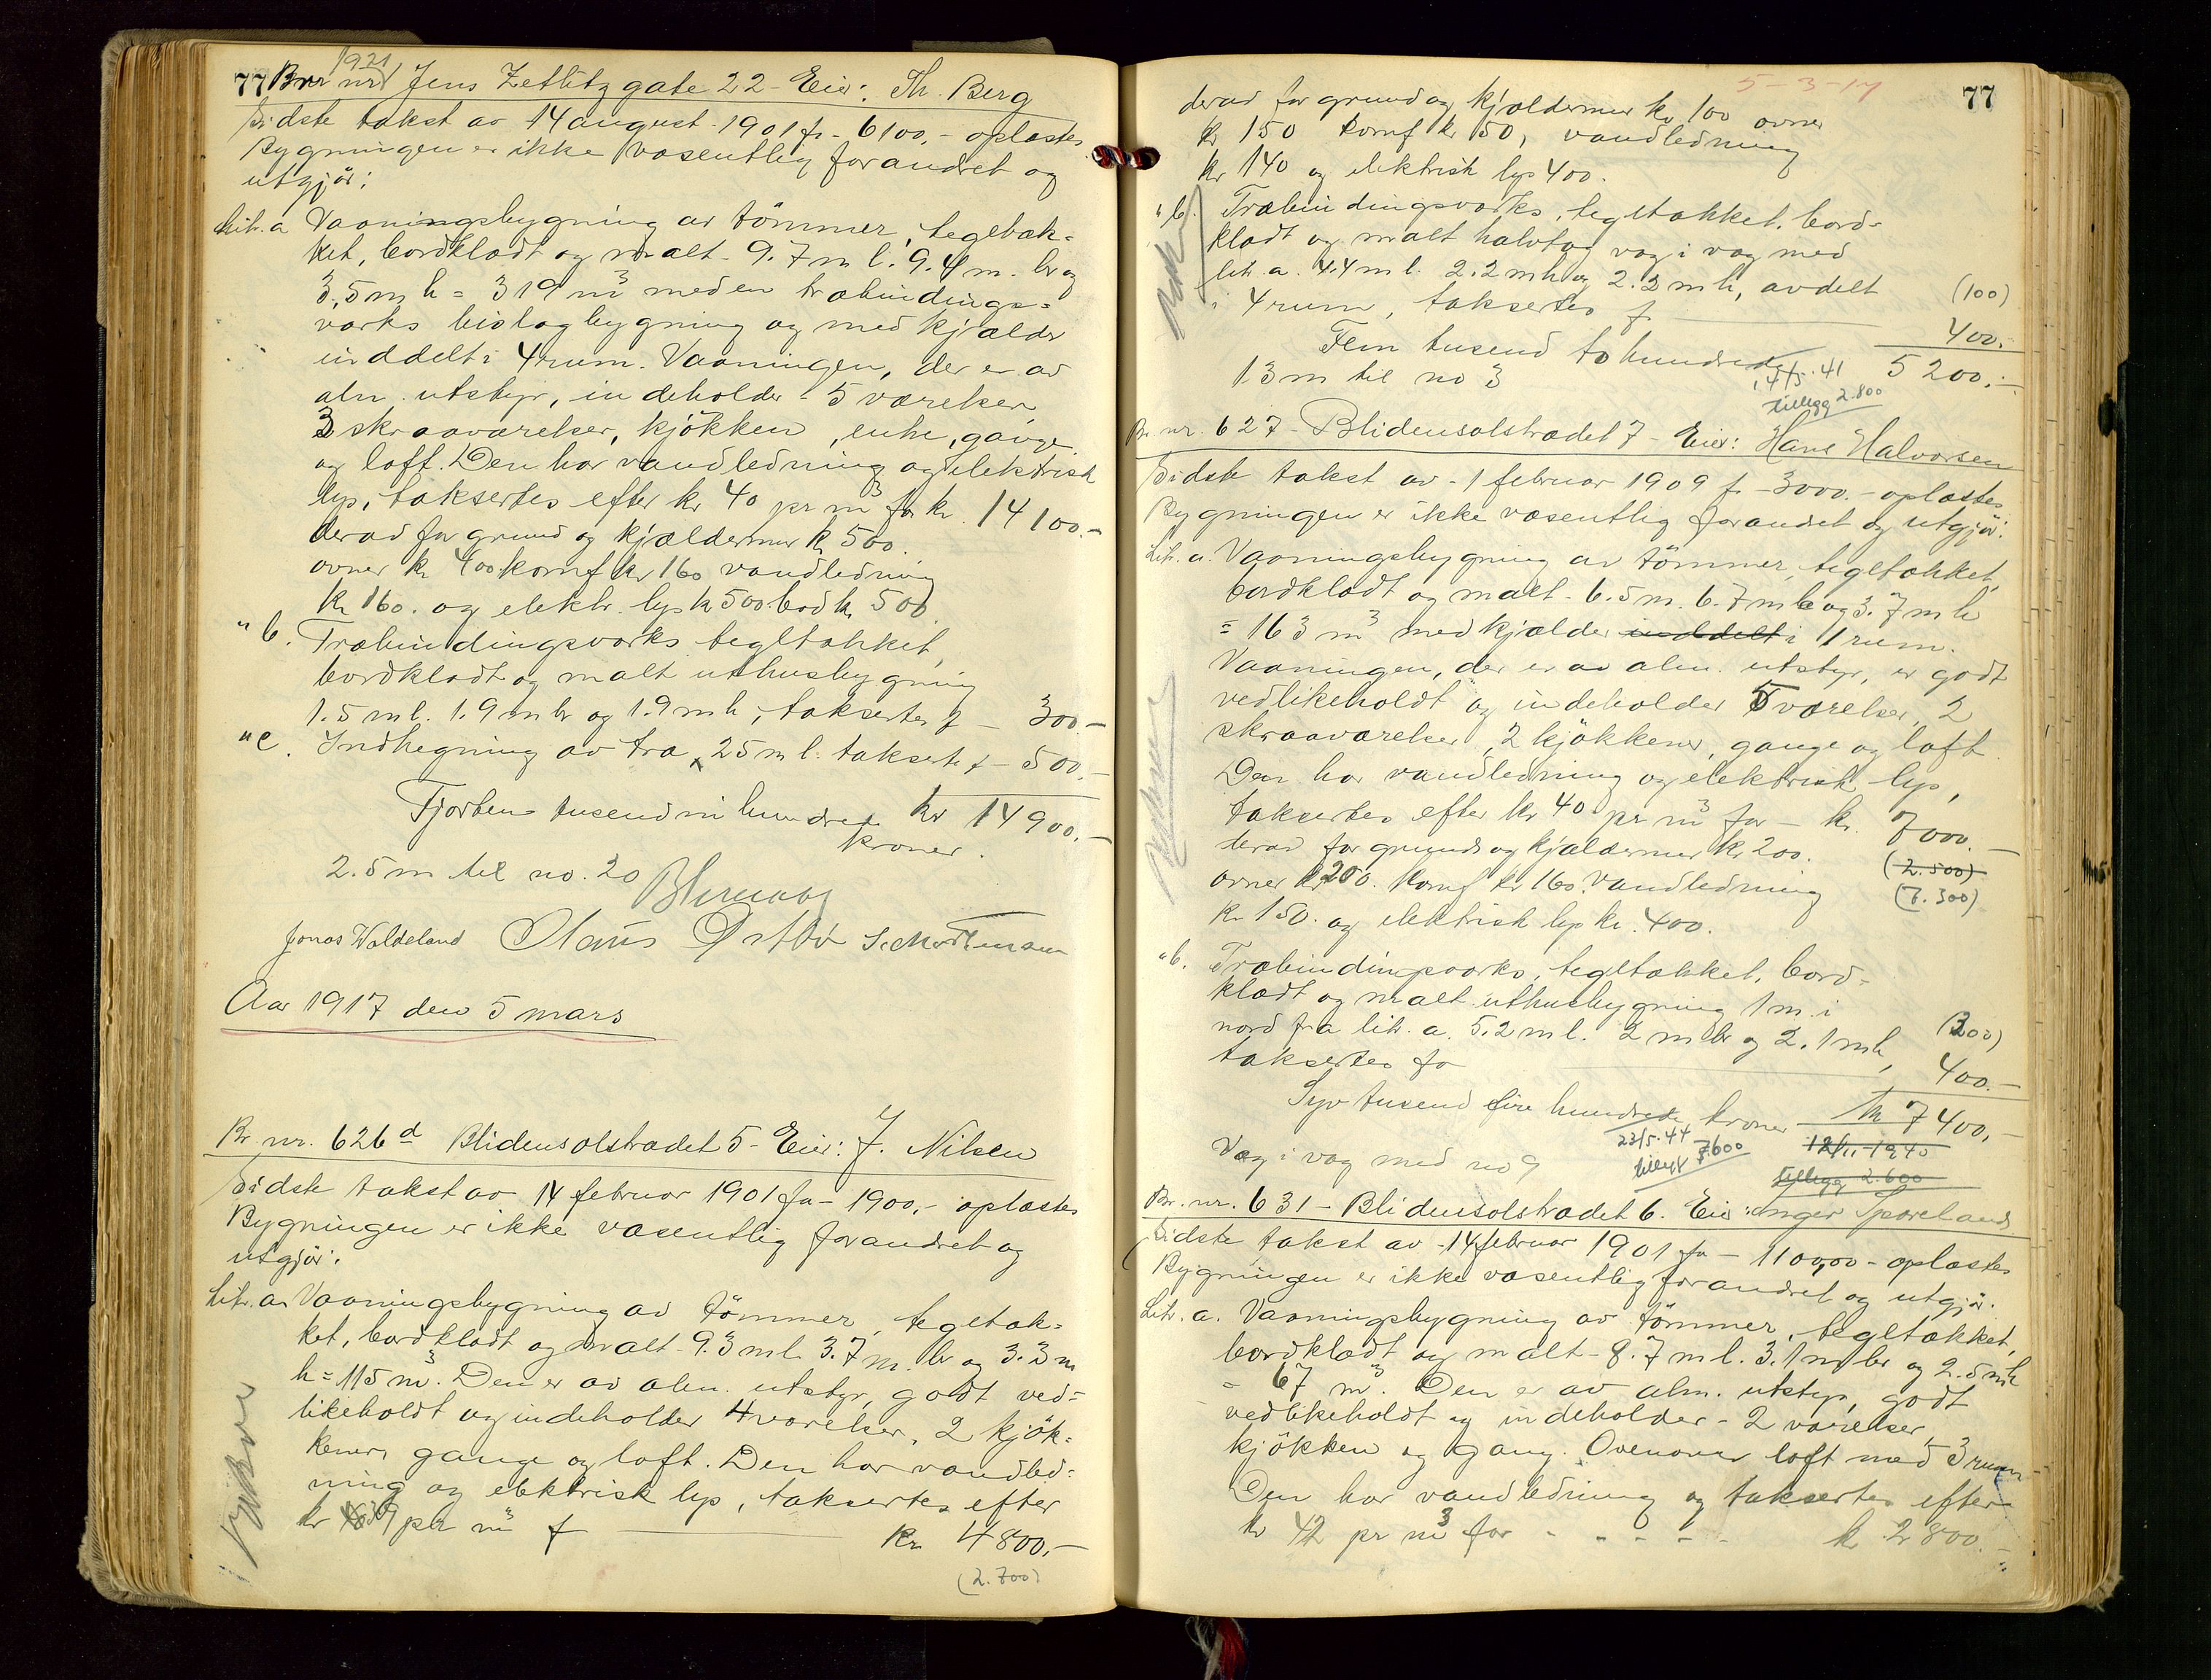 77 Br nr 1921 Jens Zetlitz gate 22 - Eier: Th. Berg
Sidste takst av 14 august 1901 fr - 6100,- oplæstes
Bygningen er ikke væsentlig forandret og
utgjör:
Litr. a Vaaningsbygning av tömmer, tegeltæk-
ket, bordklædt og malt - 9.7 m l. 9.4 m. br og
3.5 m h = 319 m3 med en træbindings-
værks bislagbygning og med kjælder
inddelt i 4 rum. Vaaningen, der er av
alm. utstyr, indeholder - 5 værelser
3 skraaværelser, kjökken, gange
og loft. Den har vandledning og elektrisk
lys, taksertes efter kr 40 pr m3 for kr. 14100.-
derav for grund og kjældermur kr 500.
ovner kr 400. komf kr 160 vandledning
kr 160. og elektr. lys kr 500. bod kr 500
" b. Træbindingsværks tegltækket,
bordklædt og malt uthusbygning
1.5 m l. 1.9 m br og 1.9 m h, taksertes f - 300.-
" c. Indhegning av træ, 25 m l. takserte f - 500.-
Fjorten tusend ni hundrede kr 14900.-
kroner.
2.5 m til no. 20
Jonas Waldeland Claus Østbö
Aar 1917 den 5 mars
Br. nr. 626 d Blidensolstrædet 5 - Eier: J. Nilsen
Sidste takst av 14 februar 1901 for - 1900,- oplæstes
Bygningen er ikke væsentlig forandret og
utgjör:
Litr. a. Vaaningsbygning av tömmer, tegltæk-
ket, bordklædt og malt - 9.3 m l 3.7 m. br og 3.3 m
h = 115 m3. Den er av alm. utstyr, godt ved-
likeholdt og indeholder 4 værelser, 2 kjök-
kener, gange og loft. Den har vandled-
ning og elektrisk lys, taksertes efter
kr 39 pr m3 f kr 4800.-
(2.700)
5-3-17 77
derav for grund og kjældermur kr 100 ovner
kr 150 komf kr 150, vandledning
kr 140 og elektrisk lys 400.
" b. Træbindingsværks, tegltækket, bord-
klædt og malt halvtag væg i væg med
litr. a. 4.4 m l. 2.2 m br og 2.3 m h, avdelt
i 4 rum, taksertes f. (100)
400.-
Fem tusend to hundrede 5200.-
13 m til no 3 14/5.41
tillegg 2.800
Br. nr. 627 - Blidensolstrædet 7 - Eier: Hans Halvorsen
Sidste takst av - 1 februar 1909 fr - 3000.- oplæstes
Bygningen er ikke væsentlig forandret og utgjör:
Litr. a. Vaaningsbygning av tömmer, tegltækket,
bordklædt og malt - 6.5 m. 6.7 m br og 3.7 m h
= 163 m3 med kjælder inddelt i 1 rum.
Vaaningen, der er av alm. utstyr, er godt
vedlikeholdt og indeholder 5 værelser, 2
skraaværelser, 2 kjökkener, gange og loft
Den har vandledning og elektrisk lys,
taksertes efter kr 40 pr m3 for - kr. 7000.-
derav for grund og kjældermur kr 200. (2.500)
ovner kr 200. komf kr 160. vandledning (7.300)
kr 150. og elektrisk lys kr. 400.
" b. Træbindingsværks, tegltækket, bord-
klædt og malt uthusbygning 1 m. i
nord fra litr. a. 5.2 m l. 2 m br og 2.1 m h, (200)
taksertes for 400.-
Syv tusend fire hundrede kroner kr 7400.-
Væg i væg med no 9 23/5.44 tillegg 7.600 12/11-1940
tillegg 2.600
Br. nr. 631 - Blidensolstrædet 6. Eier: Inger
Sidste takst av - 14 februar 1901 for - 1100,00 - oplæstes
Bygningen er ikke væsentlig forandret og utgjör:
Litr. a. Vaaningsbygning av tömmer, tegltækket,
bordklædt og malt - 8.7 m l. 3.1 m br og 2.5 m h
= 67 m3. Den er av alm. utstyr, godt
vedlikeholdt og indeholder - 2 værelser,
kjökken og gang. Ovenover loft med 3 rum
Den har vandledning og taksertes efter
kr 42 pr m3 for - - - - kr 2800.-